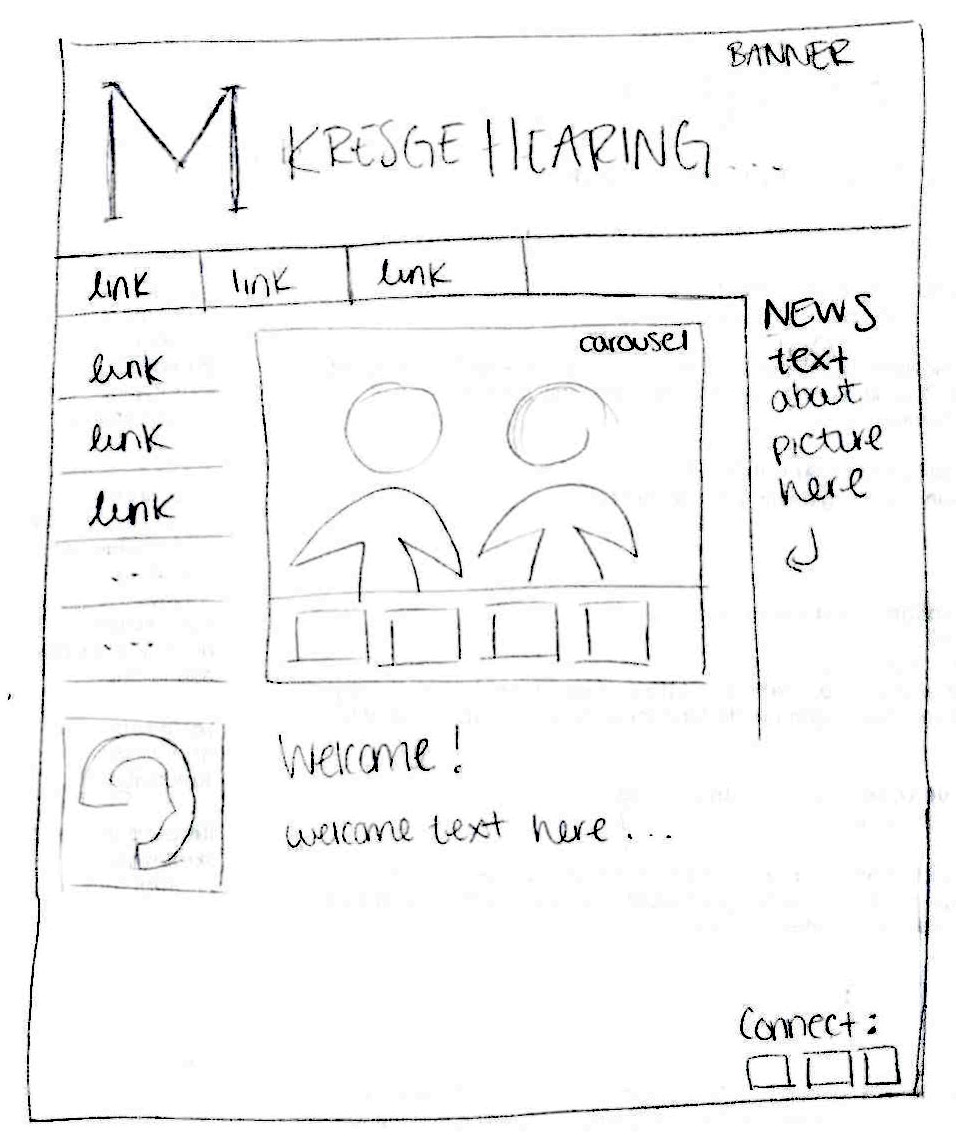 BANNER
M KRESGE HEARING...
link link link
link
link
link
...
...
carousel
NEWS
text
about
picture
here
Welcome!
welcome text here...
Connect: